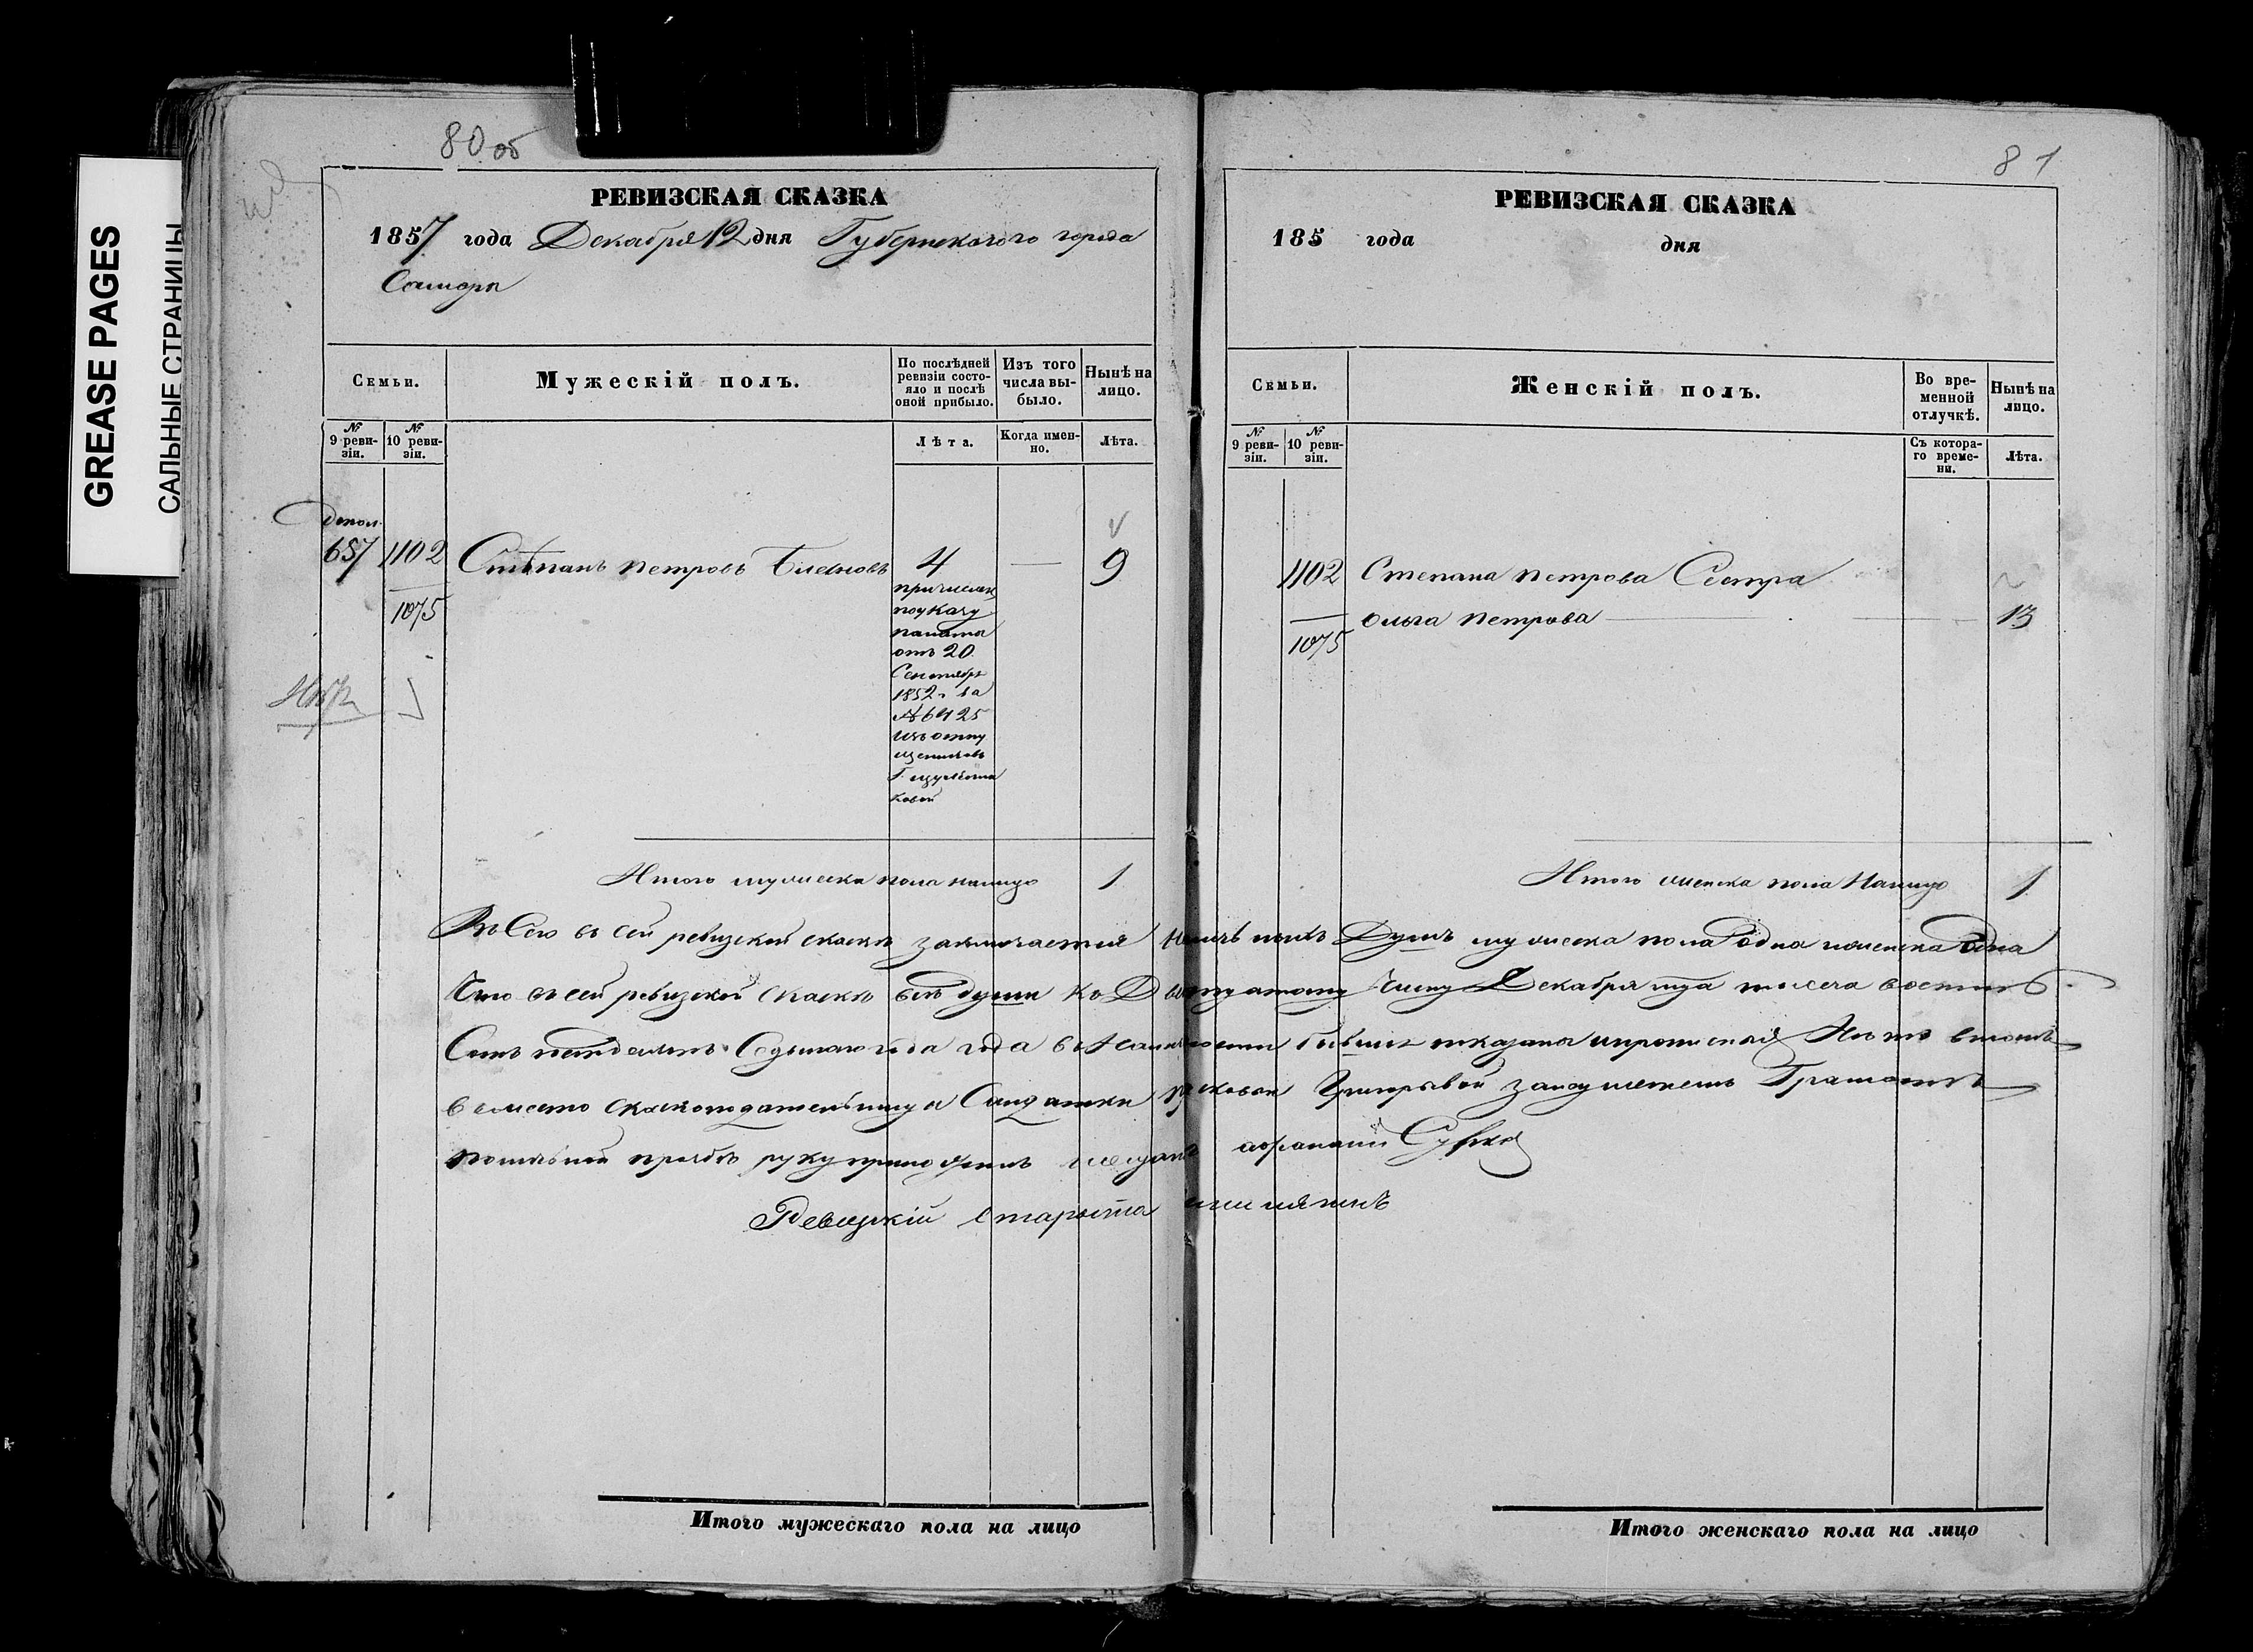 GREASE PAGES
САЛЬНЫЕ СТРАНИЦЫ
80 об
РЕВИЗСКАЯ СКАЗКА
1857 года Декабря 12 дня Губернскаго города
Самары
Семьи.
Мужескій полъ.
По послѣдней ревизіи состояло и послѣ оной прибыло.
Изъ того числа выбыло.
Нынѣ на лицо.
№ 9 ревизіи.
№ 10 ревизіи.
Лѣта.
Когда именно.
Лѣта.
допол.
657 1102 Степанъ Петровъ 4 — 9
1075
причислен
по указу
палаты
отъ 20
Сентября
1852 г. за
№ 6425
изъ отпу
щенников
Г.
ковой
Итого мужеска пола налицо 1
81
РЕВИЗСКАЯ СКАЗКА
185 года дня
Семьи.
Женскій полъ.
Во временной отлучкѣ.
Нынѣ на лицо.
№ 9 ревизіи.
№ 10 ревизіи.
Съ котораго времени.
Лѣта.
1102 Степана Петрова Сестра
1075 Ольга Петрова — 13
Итого женска пола Налицо 1
Всего в сей ревизской сказкѣ заключается душъ мужеска пола одна и женска одна
Что в сей ревизской сказкѣ всѣ души къ Двенадцатому Числу Декабря тысяча восемь
Сотъ пятдесятъ Седьмаго года в Наличности бывши показаны и прописныхъ Нетъ в томъ
вместо сказкоподательницы Салдатки Григорьевой за неуменіемъ Грамоте
по личной прозбе руку приложилъ
Ревизскій староста
Итого мужескаго пола на лицо
Итого женскаго пола на лицо